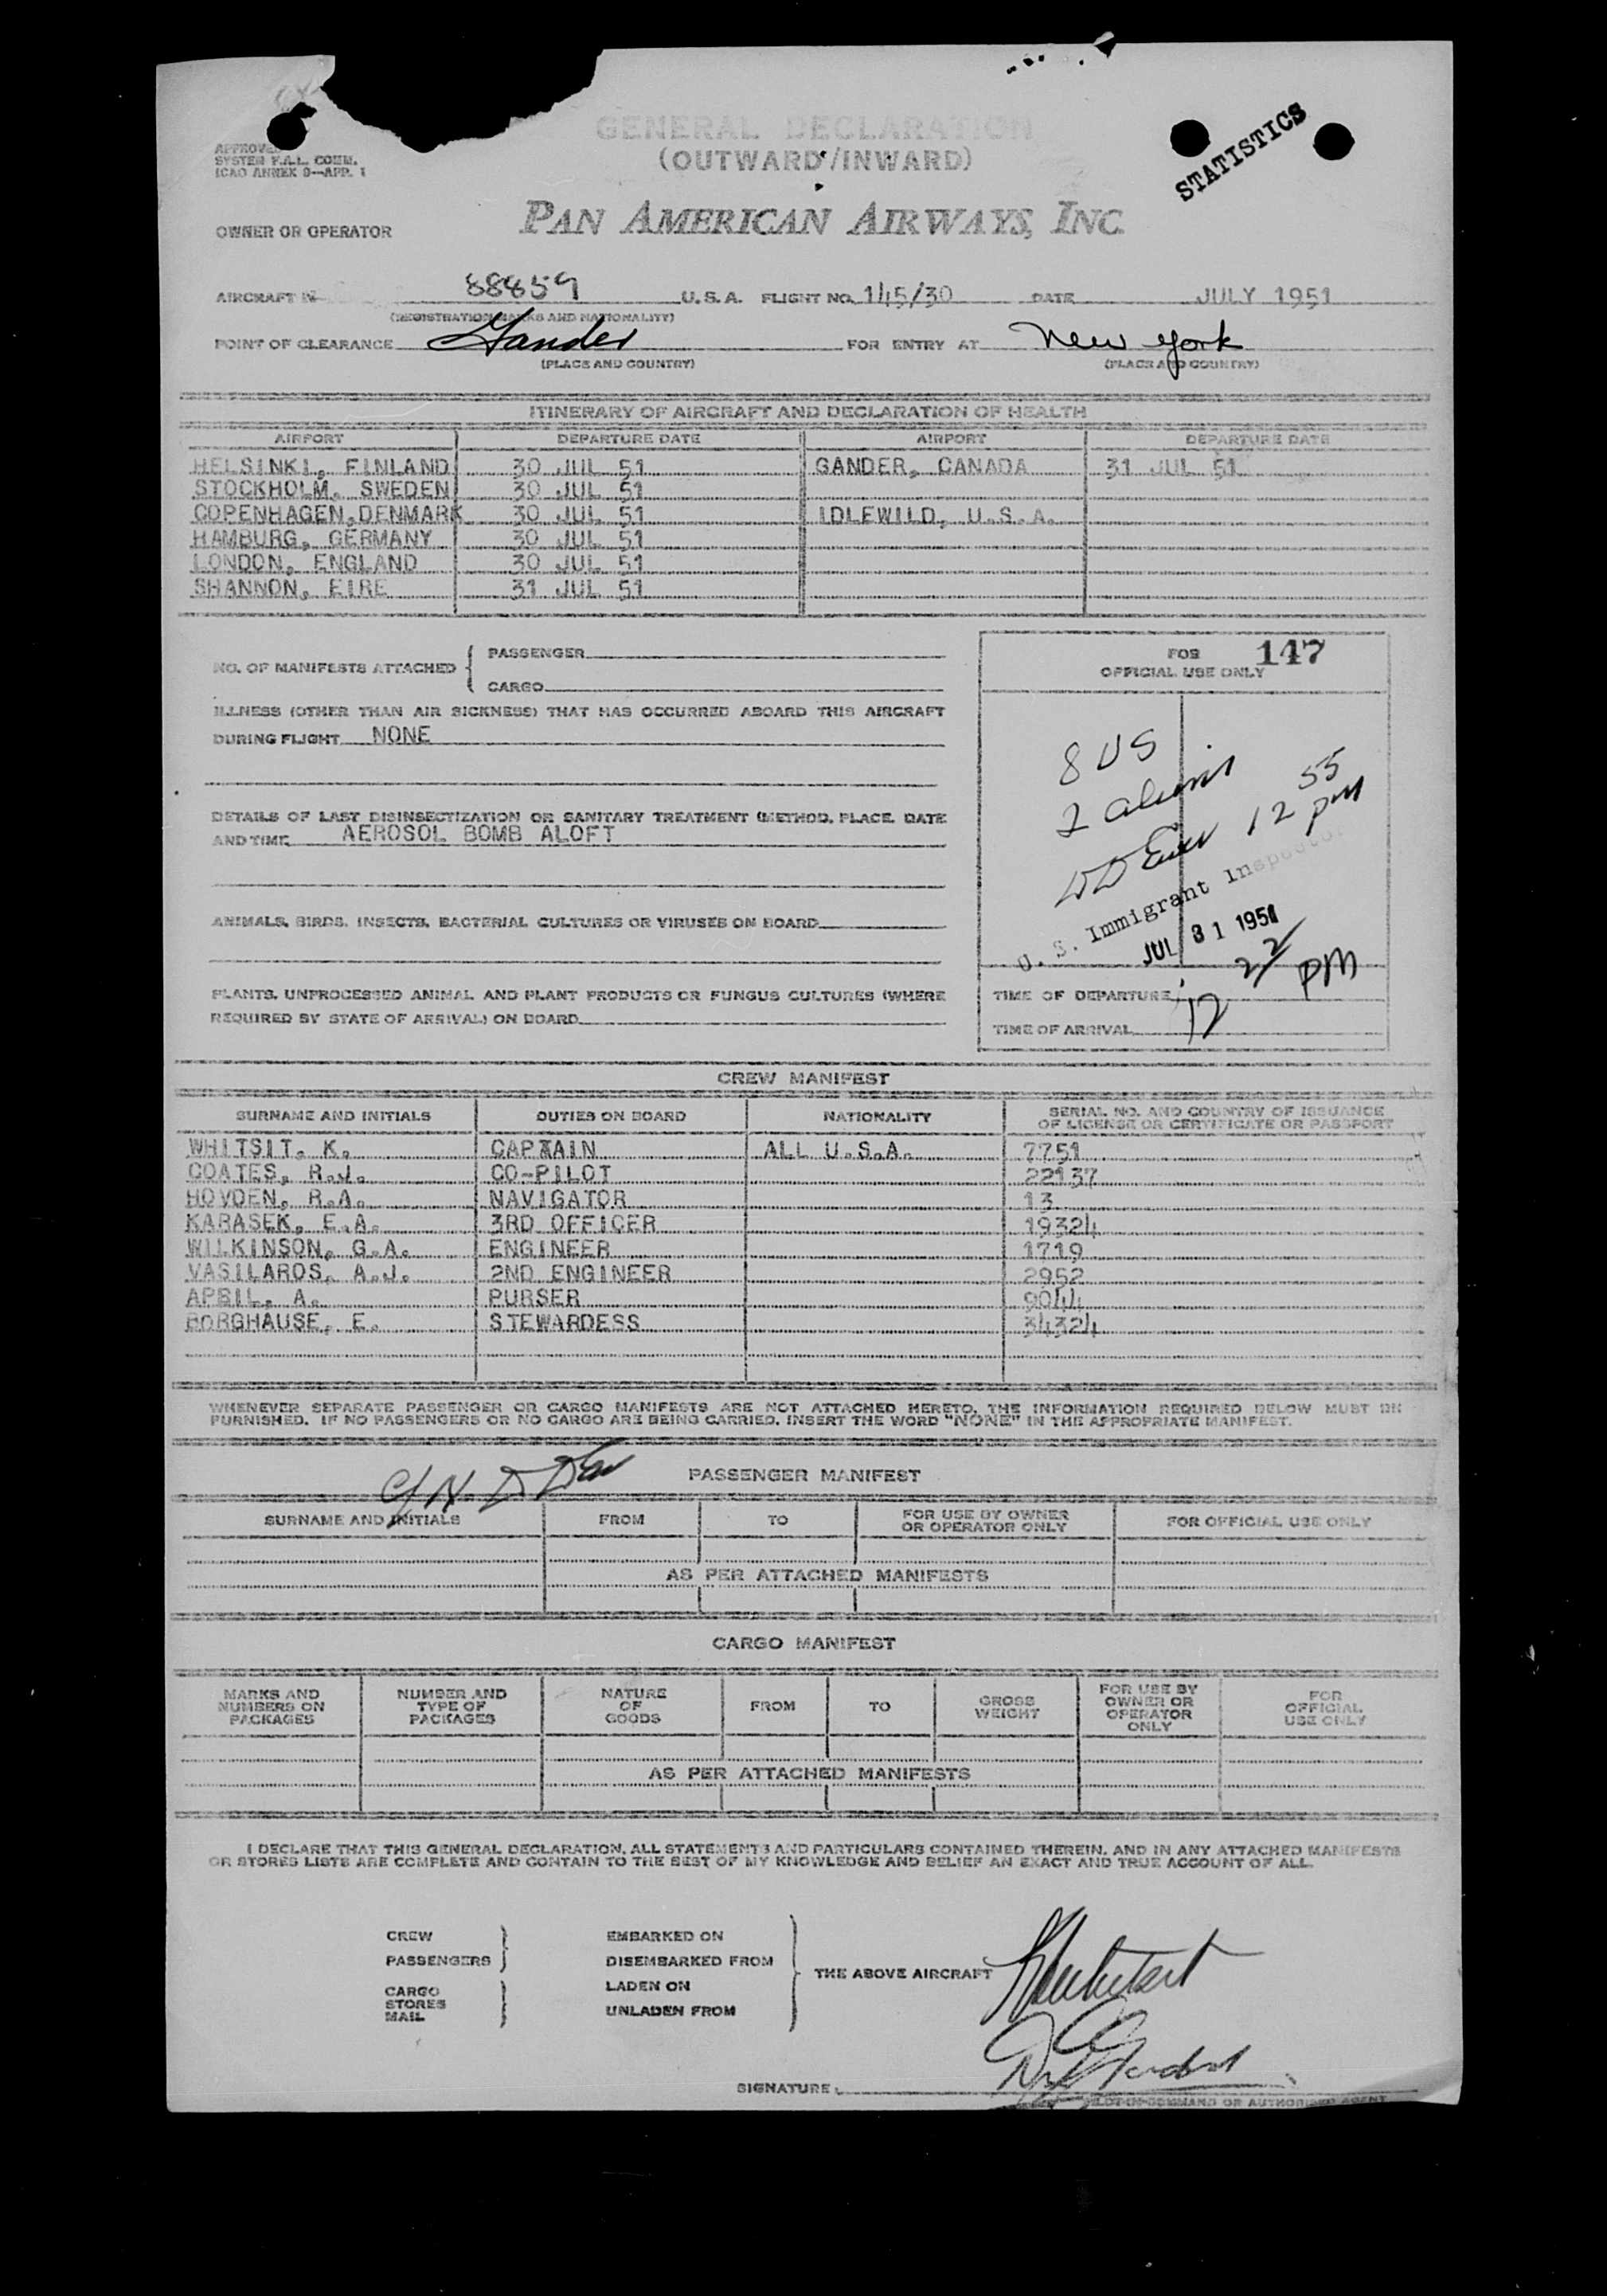 GENERAL DECLARATION
(OUTWARD/INWARD)
STATISTICS
APPROVED
SYSTEM F.A.L. COMM.
ICAO ANNEX 9—APP. 1
OWNER OR OPERATOR PAN AMERICAN AIRWAYS, INC.
AIRCRAFT N 88859 U.S.A. FLIGHT NO. 145/30 DATE JULY 1951
(REGISTRATION MARKS AND NATIONALITY)
POINT OF CLEARANCE Gander FOR ENTRY AT New York
(PLACE AND COUNTRY) (PLACE AND COUNTRY)
ITINERARY OF AIRCRAFT AND DECLARATION OF HEALTH
AIRPORT DEPARTURE DATE AIRPORT DEPARTURE DATE
HELSINKI, FINLAND 30 JUL 51 GANDER, CANADA 31 JUL 51
STOCKHOLM, SWEDEN 30 JUL 51
COPENHAGEN, DENMARK 30 JUL 51 IDLEWILD, U.S.A.
HAMBURG, GERMANY 30 JUL 51
LONDON, ENGLAND 30 JUL 51
SHANNON, EIRE 31 JUL 51
NO. OF MANIFESTS ATTACHED { PASSENGER
CARGO
ILLNESS (OTHER THAN AIR SICKNESS) THAT HAS OCCURRED ABOARD THIS AIRCRAFT
DURING FLIGHT NONE
DETAILS OF LAST DISINSECTIZATION OR SANITARY TREATMENT (METHOD, PLACE, DATE
AND TIME AEROSOL BOMB ALOFT
ANIMALS, BIRDS, INSECTS, BACTERIAL CULTURES OR VIRUSES ON BOARD
PLANTS, UNPROCESSED ANIMAL AND PLANT PRODUCTS OR FUNGUS CULTURES (WHERE
REQUIRED BY STATE OF ARRIVAL) ON BOARD
FOR 147
OFFICIAL USE ONLY
8 US
2 aliens
12 55 PM
U. S. Immigrant Inspector
JUL 31 1951
12 22 PM
TIME OF DEPARTURE
TIME OF ARRIVAL
CREW MANIFEST
SURNAME AND INITIALS DUTIES ON BOARD NATIONALITY SERIAL NO. AND COUNTRY OF ISSUANCE
OF LICENSE OR CERTIFICATE OR PASSPORT
WHITSIT, K. CAPTAIN ALL U.S.A. 7751
COATES, R.J. CO-PILOT 22137
HOVDEN, R.A. NAVIGATOR 13
KARASEK, E.A. 3RD OFFICER 19324
WILKINSON, G.A. ENGINEER 1719
VASILAROS, A.J. 2ND ENGINEER 2952
APRIL, A. PURSER 9044
BORGHAUSE, E. STEWARDESS 34324
WHENEVER SEPARATE PASSENGER OR CARGO MANIFESTS ARE NOT ATTACHED HERETO, THE INFORMATION REQUIRED BELOW MUST BE
FURNISHED. IF NO PASSENGERS OR NO CARGO ARE BEING CARRIED, INSERT THE WORD "NONE" IN THE APPROPRIATE MANIFEST.
PASSENGER MANIFEST
SURNAME AND INITIALS FROM TO FOR USE BY OWNER
OR OPERATOR ONLY FOR OFFICIAL USE ONLY
AS PER ATTACHED MANIFESTS
CARGO MANIFEST
MARKS AND
NUMBERS ON
PACKAGES NUMBER AND
TYPE OF
PACKAGES NATURE
OF
GOODS FROM TO GROSS
WEIGHT FOR USE BY
OWNER OR
OPERATOR
ONLY FOR
OFFICIAL
USE ONLY
AS PER ATTACHED MANIFESTS
I DECLARE THAT THIS GENERAL DECLARATION, ALL STATEMENTS AND PARTICULARS CONTAINED THEREIN, AND IN ANY ATTACHED MANIFESTS
OR STORES LISTS ARE COMPLETE AND CONTAIN TO THE BEST OF MY KNOWLEDGE AND BELIEF AN EXACT AND TRUE ACCOUNT OF ALL.
CREW EMBARKED ON
PASSENGERS DISEMBARKED FROM
THE ABOVE AIRCRAFT
CARGO LADEN ON
STORES
MAIL UNLADEN FROM
SIGNATURE
PILOT-IN-COMMAND OR AUTHORISED AGENT